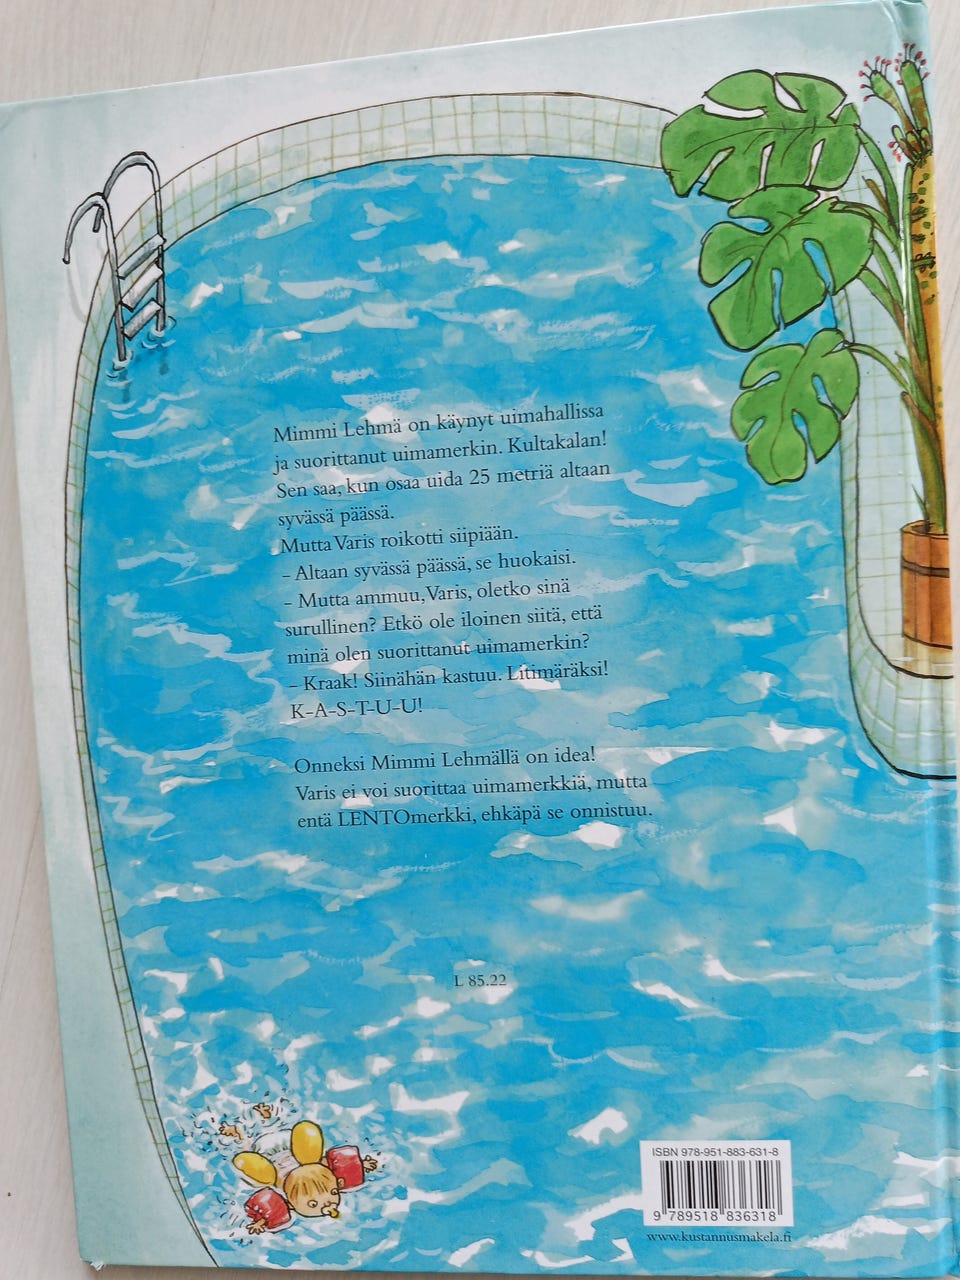 Mimmi Lehmä on käynyt uimahallissa
ja suorittanut uimamerkin. Kultakalan!
Sen saa, kun osaa uida 25 metriä altaan
syvässä päässä.
Mutta Varis roikotti siipiään.
– Altaan syvässä päässä, se huokaisi.
– Mutta ammuu, Varis, oletko sinä
surullinen? Etkö ole iloinen siitä, että
minä olen suorittanut uimamerkin?
– Kraak! Siinähän kastuu. Litimäräksi!
K-A-S-T-U-U!
Onneksi Mimmi Lehmällä on idea!
Varis ei voi suorittaa uimamerkkiä, mutta
entä LENTOmerkki, ehkäpä se onnistuu.
L 85.22
ISBN 978-951-883-631-8
9 789518 836318
www.kustannusmakela.fi